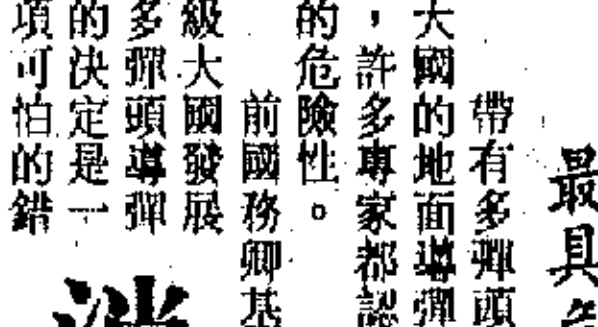 最具
帶有多彈頭
大國的地面導彈
，許多專家都認
的危險性。
前國務卿基
級大國發展
多彈頭導彈
的決定是一
項可怕的錯